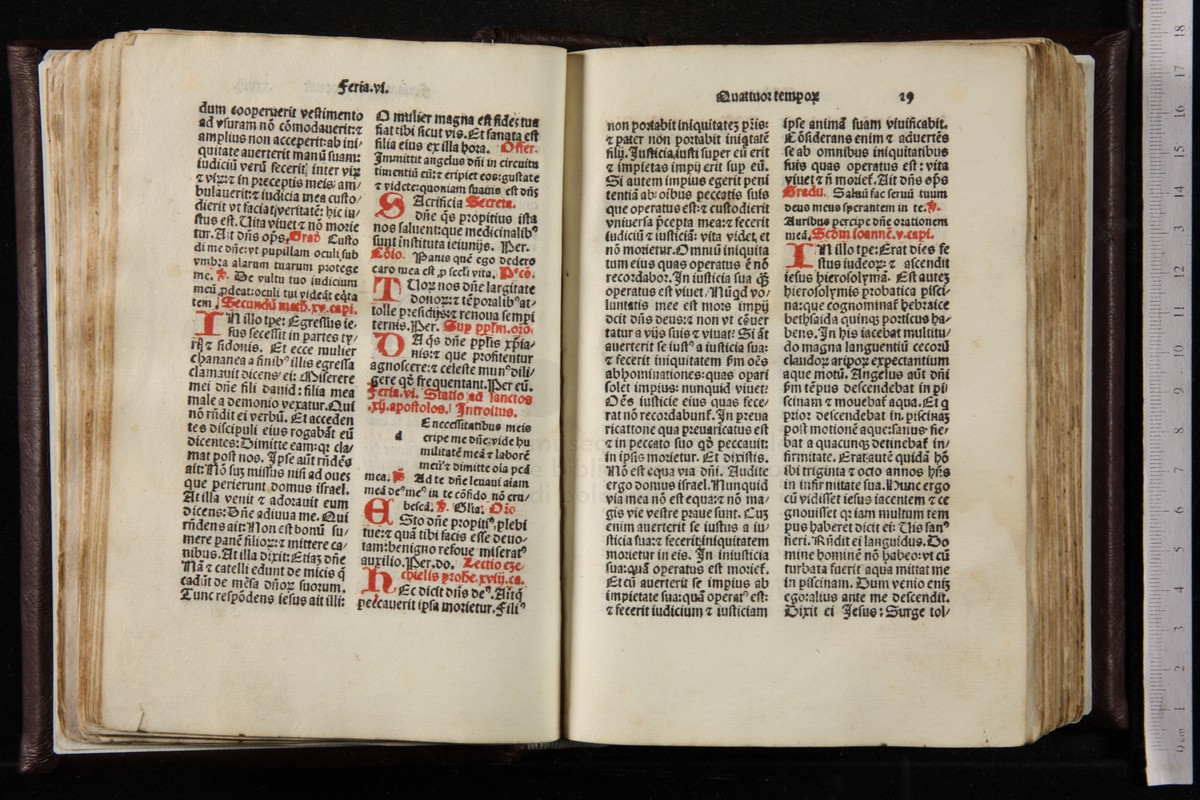 Feria.vi.
dum cooperuerit vestimento
ad vsuram nō cōmodauerit:⁊
amplius non acceperit: ab ini/
quitate auerterit manū suam:
iudiciū verū fecerit inter virꝝ
⁊ virꝝ: ⁊ in preceptis meis am/
bulauerit: ⁊ iudicia mea custo/
dierit vt faciat veritatē: hic iu/
stus est. Uita viuet ⁊ nō morie
tur. Ait dn̄s op̄s. Grad Custo
di me dn̄e: vt pupillam oculi sub
vmbra alarum tuarum protege
me. ꝟ. De vultu tuo iudicium
meū ꝓdeat: oculi tui videāt eq̄ta
tem. Secundū math. xv. capi.
IN illo tpe: Egressus ie/
sus secessit in partes ty/
ri ⁊ sidonis. Et ecce mulier
chananea a finibꝰ illis egressa
clamauit dicens ei: Miserere
mei dn̄e fili dauid: filia mea
male a demonio vexatur. Qui
nō rn̄dit ei verbū. Et acceden
tes discipuli eius rogabāt eū
dicentes: Dimitte eam: qꝛ cla/
mat post nos. Ipse aūt rn̄dēs
ait: Nō suꝫ missus nisi ad oues
que perierunt domus israel.
At illa venit ⁊ adorauit eum
dicens: Dn̄e adiuua me. Qui
rn̄dens ait: Non est bonū su/
mere panē filioꝝ: ⁊ mittere ca/
nibus. At illa dixit: Etiaꝫ dn̄e
Nā ⁊ catelli edunt de micis q̄
cadūt de mēsa dn̄oꝝ suorum.
Tunc respōdens iesus ait illi:
O mulier magna est fides tua
fiat tibi sicut vis. Et sanata est
filia eius ex illa hora. Offer.
Immittit angelus dn̄i in circuitu
timentiū eū: ⁊ eripiet eos: gustate
⁊ videte: quoniam suauis est dn̄s
SAcrificia Secreta.
dn̄e q̄s propitius ista
nos saluent: que medicinalibꝰ
sunt instituta ieiunijs. Per.
Cōio. Panis quē ego dedero
caro mea est ꝓ secli vita. Pꝰcō.
TUor nos dn̄e largitate
donorꝝ: ⁊ tēporalibꝰ at/
tolle presidijs: ⁊ renoua sempi
ternis. Per. Sup pplm. oro.
DA q̄s dn̄e pplis xp̄ia/
nis: ⁊ que profitentur
agnoscere: ⁊ celeste munꝰ dili/
gere qd̄ frequentant. Per eū.
Feria. vi. Statio ad sanctos
.xij. apostolos. Introitus.
dE necessitatibus meis
eripe me dn̄e: vide hu
militatē meā ⁊ laborē
meū: ⁊ dimitte oīa pcā
mea. ps Ad te dn̄e leuaui aīam
meā deꝰ meꝰ in te cōfido nō eru/
bescā. ꝟ. Glīa. Oro
ESto dn̄e propitiꝰ plebi
tue: ⁊ quā tibi facis esse deuo/
tam: benigno refoue miseratꝰ
auxilio. Per. do. Lectio eze/
chielis prohe. xviij. ca.
HEc dicit dn̄s deꝰ. Aīa q̄
peccauerit ipsa morietur. Filiꝰ
Quattuor tempoꝝ 29
non portabit iniquitateꝫ pr̄is:
⁊ pater non portabit iniq̄tatē
filij. Iusticia iusti super eū erit
⁊ impietas impij erit sup eū.
Si autem impius egerit peni
tentiā ab oībus peccatis suis
que operatus est: ⁊ custodierit
vniuersa p̄cepta mea: ⁊ fecerit
iudiciū ⁊ iusticiā: vita viuet, et
nō morietur. Omniū iniquita
tum eius quas operatus ē nō
recordabor. In iusticia sua q̄ꝫ
operatus est viuet. Nūqd vo/
luntatis mee est mors impij
dicit dn̄s deus: ⁊ non vt cōuer
tatur a vijs suis ⁊ viuat? Si āt
auerterit se iustꝰ a iusticia sua:
⁊ fecerit iniquitatem ẜm oēs
abhominationes: quas opari
solet impius: nunquid viuet?
Oēs iusticie eius quas fece/
rat nō recordabunt. In preua
ricattone qua preuaricatus est
⁊ in peccato suo qd̄ peccauit:
in ipsis morietur. Et dixistis.
Nō est equa via dn̄i. Audite
ergo domus israel. Nunquid
via mea nō est equa: ⁊ nō ma/
gis vie vestre praue sunt. Cuꝫ
enim auerterit se iustus a iu/
sticia sua: ⁊ fecerit iniquitatem
morietur in eis. In iniusticia
sua: quā operatus est moriet.
Et cū auerterit se impius ab
impietate sua: quā operatꝰ est:
⁊ fecerit iudicium ⁊ iusticiam
ipse animā suam viuificabit.
Cōsiderans enim ⁊ aduertēs
se ab omnibus iniquitatibus
suis quas operatus est: vita
viuet ⁊ n̄ moriet. Ait dn̄s op̄s
Gradu. Saluū fac seruū tuum
deus meus sperantem in te. ꝟ.
Auribus percipe dn̄e orationem
meā. Scdm ioannē. v. capi.
IN illo tpe: Erat dies fe
stus iudeoꝝ: ⁊ ascendit
iesus hierosolymā. Est auteꝫ
hierosolymis probatica pisci/
na: que cognominat hebraice
bethsaida quinqꝫ porticus ha/
bens. In his iacebat multitu/
do magna languentiū cecorū
claudoꝝ aridoꝝ expectantium
aque motū. Angelus aūt dn̄i
ẜm tēpus descendebat in pi
scinam ⁊ mouebat̄ aqua. Et q
prior descendebat in piscinaꝫ
post motionē aque: sanus fie/
bat a quacunqꝫ detinebat̄ in/
firmitate. Erat aūtē quidā hō
ibi triginta ⁊ octo annos hn̄s
in infirmitate sua. Hunc ergo
cū vidisset iesus iacentem ⁊ ce
gnouisset qꝛ iam multum tem
pus haberet dicit ei: Uis sanꝰ
fieri. Rn̄dit ei languidus. Do
mine hominē nō habeo: vt cū
turbata fuerit aqua mittat me
in piscinam. Dum venio eniꝫ
ego: alius ante me descendit.
Dixit ei Iesus: Surge tol/